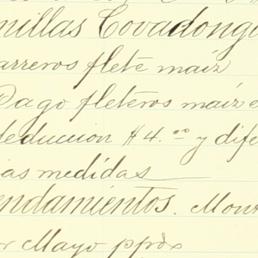 millas Covadonga
arreros flete maíz
Pago fleteros maíz e
deduccion $4.00 y dife
ias medidas
endamientos. Mon
r Mayo ppdo